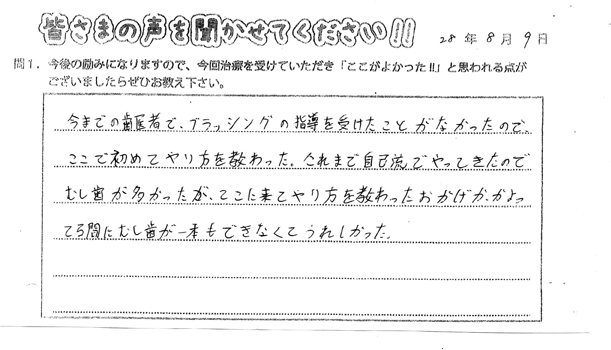 皆さまの声を聞かせてください!!
28 年 8 月 9 日
問1．今後の励みになりますので、今回治療を受けていただき「ここがよかった!!」と思われる点が
ございましたらぜひお教え下さい。
今までの歯医者で、ブラッシングの指導を受けたことがなかったので、
ここで初めてやり方を教わった。これまで自己流でやってきたので
むし歯が多かったが、ここに来てやり方を教わったおかげか、かよっ
てる間にむし歯が一本もできなくてうれしかった。